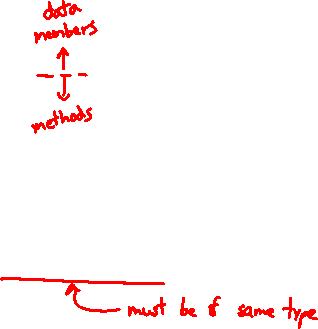 data
members
methods
must be of same type